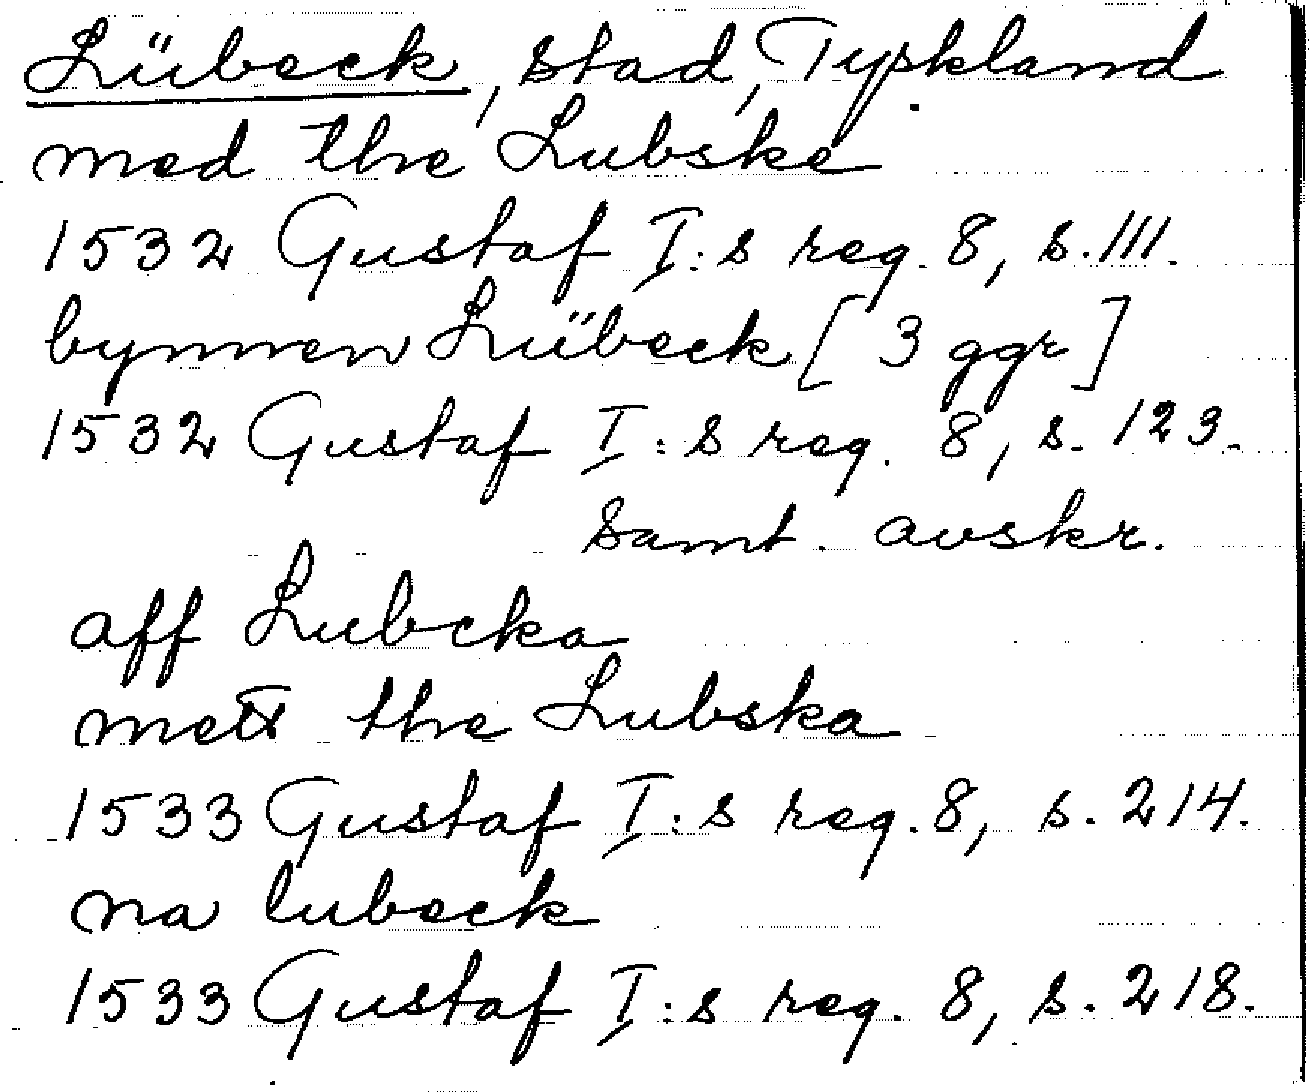 Lübeck, stad, Tyskland.
med the Lubske
1532 Gustaf I:s reg. 8, s. 111.
bynnen Lübeck [3 ggr]
1532 Gustaf I:s reg. 8, s. 123.
Samt. avskr.
aff Lubcka
mett the Lubska
1533 Gustaf I:s reg. 8, s. 214.
na lubeck
1533 Gustaf I:s reg. 8, s. 218.